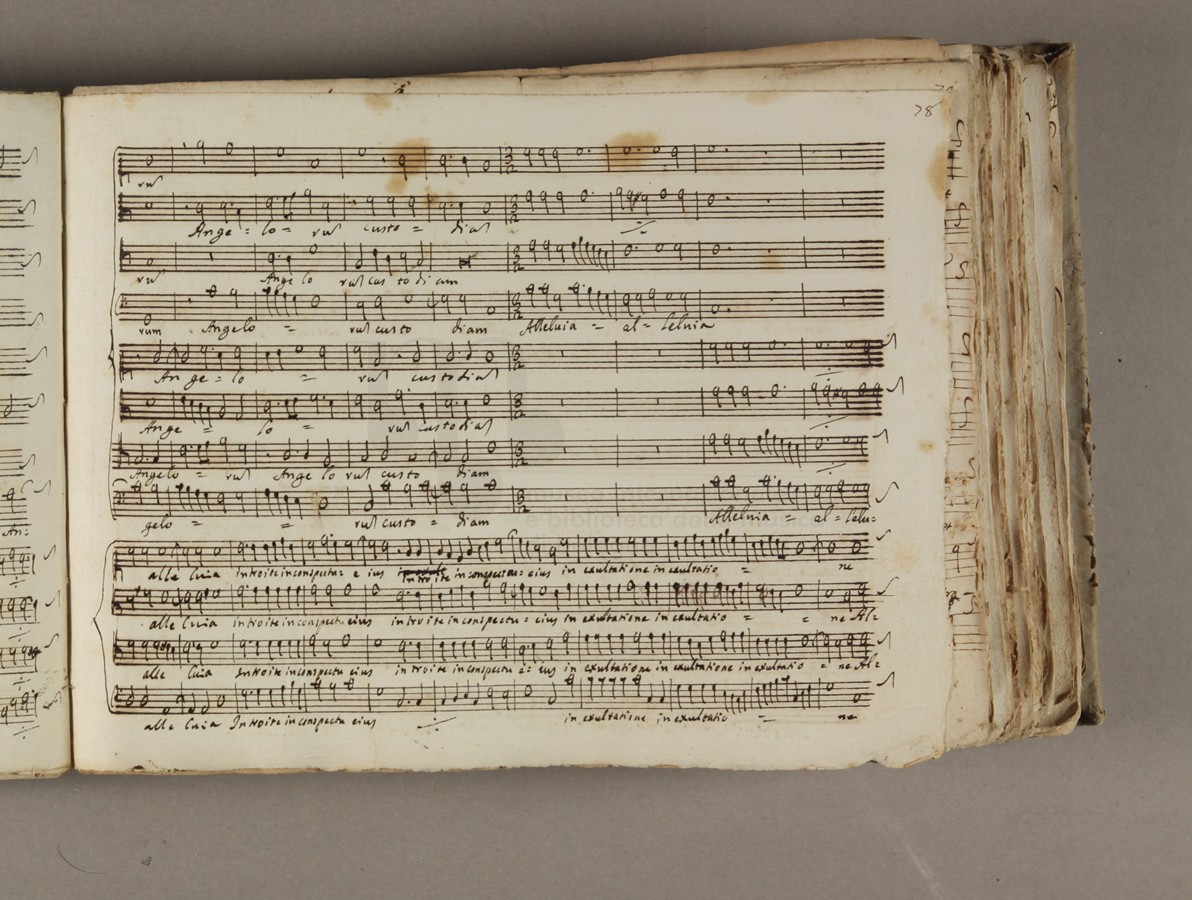 78
Ange = lo = rum custo = diam
rum Ange lo rum cus to di am
rum Angelo = rum custo diam Alleluia = al = leluia
Ange = lo = rum custodiam
Ange = lo = rum custodiam
Angelo = rum Ange lo rum custo diam
gelo = = rum custo = diam Alleluia = al = lelu=
alle luia introite in conspectu = e ius introite in conspectu = eius in exultatione in exultatio = ne
alle luia introite in conspectu eius introite in conspectu = eius in exultatione in exultatio = = ne Al=
alle luia Introite in conspectu eius introite in conspectu = eius in exultatione in exultatione in exultatio = ne Al=
alle luia Introite in conspectu eius in exultatione in exultatio = ne
An:
e biblioteca della musica